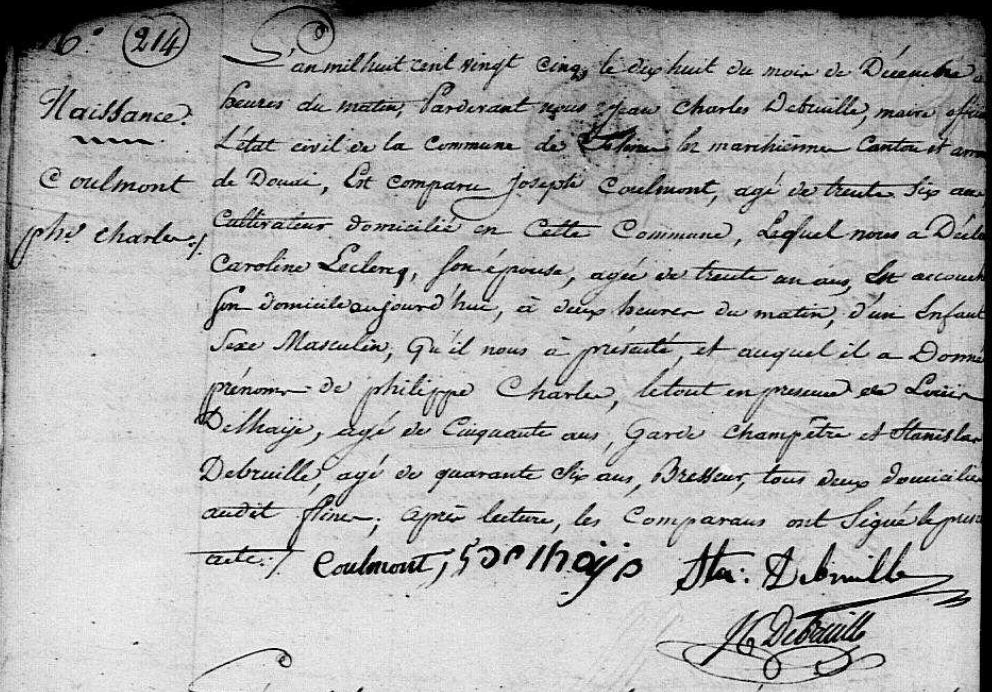 6e 214
Naissance.
Coulmont
phe charles ./.
L'an mil huit cent vingt cinq, le dix huit du mois de Décembre
heures du matin, Pardevant nous Jean Charles Debruille, maire offici
L'état civil de la commune de lez marchiennes Canton et arron
de Douai, Est comparu Joseph Coulmont, agé de trente six ans
Cultivateur domicilié en cette Commune, Lequel nous a Décla
Caroline Leclercq, son épouse, agée de trente un ans, Est accouch
son domicile aujourd'hui, à deux heures du matin, d'un Enfant
Sexe Masculin, Qu'il nous à présenté, et auquel il a Donné
prénoms de philippe Charles, le tout en presence de Louis
Delhaije, agé de Cinquante ans, Garde champêtre et Stanislas
Debruille, agé de quarante Six ans, Brasseur, tous deux domiciliés
audit flines; après lecture, les Comparans ont Signé le prese
acte ./. Coulmont, Delhaije Sta: Debruille
JC Debruille